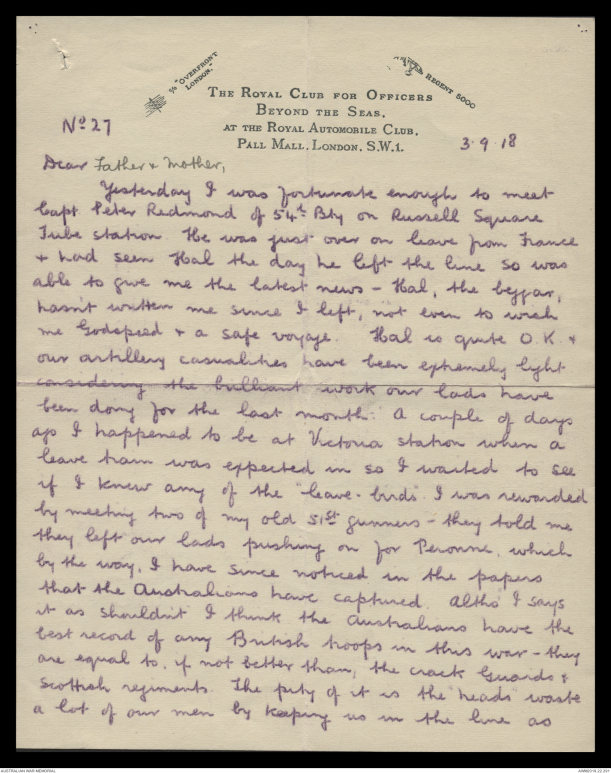 c/o "OVERFRONT
LONDON."
REGENT 5000
THE ROYAL CLUB FOR OFFICERS
BEYOND THE SEAS,
AT THE ROYAL AUTOMOBILE CLUB,
PALL MALL, LONDON, S.W.1.
No 27
3.9.18
Dear Father & Mother,
Yesterday I was fortunate enough to meet
Capt Peter Redmond of 54th Bty on Russell Square
Tube station. He was just over on leave from France
& had seen Hal the day he left the line so was
able to give me the latest news - Hal, the beggar,
hasn't written me since I left, not even to wish
me Godspeed & a safe voyage. Hal is quite O.K. &
our artillery casualities have been extremely light
considering the brilliant work our lads have
been doing for the last month. A couple of days
ago I happened to be at Victoria station when a
leave train was expected in so I waited to see
if I knew any of the "leave-birds". I was rewarded
by meeting two of my old 51st gunners - they told me
they left our lads pushing on for Peronne, which
by the way, I have since noticed in the papers
that the Australians have captured. Altho' I says
it as shouldn't I think the Australians have the
best record of any British troops in this war - they
are equal to, if not better than, the crack Guards &
Scottish regiments. The pity of it is the "heads" waste
a lot of our men by keeping us in the line as
AUSTRALIAN WAR MEMORIAL